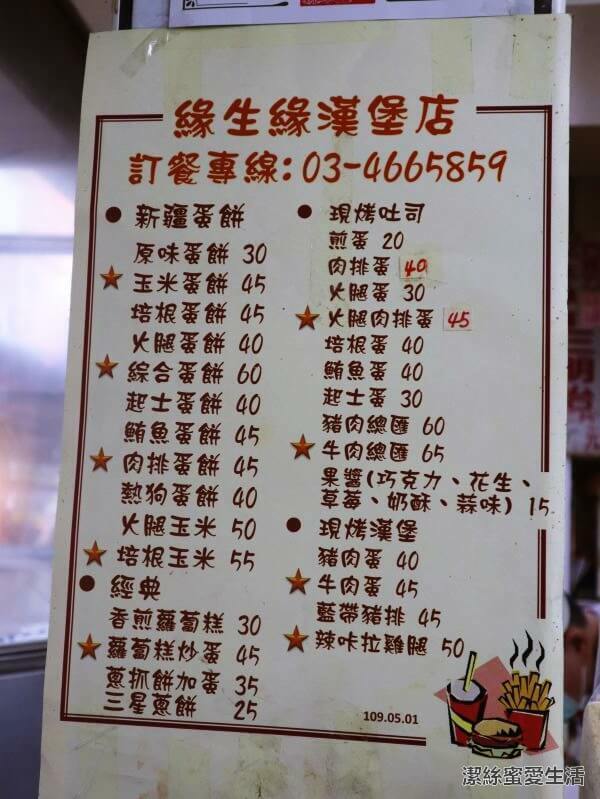 緣生緣漢堡店
訂餐專線:03-4665859
● 新疆蛋餅
原味蛋餅 30
★ 玉米蛋餅 45
培根蛋餅 45
火腿蛋餅 40
★ 綜合蛋餅 60
起士蛋餅 40
鮪魚蛋餅 45
★ 肉排蛋餅 45
熱狗蛋餅 40
火腿玉米 50
★ 培根玉米 55
● 經典
香煎蘿蔔糕 30
★ 蘿蔔糕炒蛋 45
蔥抓餅加蛋 35
三星蔥餅 25
● 現烤吐司
煎蛋 20
肉排蛋 40
火腿蛋 30
★ 火腿肉排蛋 45
培根蛋 40
鮪魚蛋 40
起士蛋 30
豬肉總匯 60
★ 牛肉總匯 65
果醬(巧克力、花生、
草莓、奶酥、蒜味) 15
● 現烤漢堡
豬肉蛋 40
★ 牛肉蛋 45
藍帶豬排 45
★ 辣咔拉雞腿 50
109.05.01
潔絲蜜愛生活